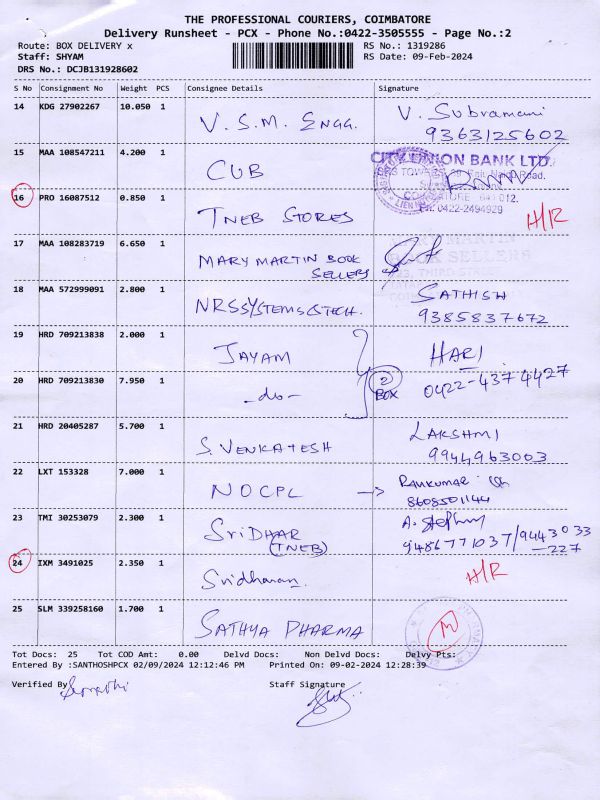 THE PROFESSIONAL COURIERS, COIMBATORE
Delivery Runsheet - PCX - Phone No.:0422-3505555 - Page No.:2
Route: BOX DELIVERY x RS No.: 1319286
Staff: SHYAM RS Date: 09-Feb-2024
DRS No.: DCJB131928602
S No Consignment No Weight PCS Consignee Details Signature
14 KDG 27902267 10.050 1 V.S.M. ENGG. V. Subramani
9363125602
15 MAA 108547211 4.200 1 CUB CITY UNION BANK LTD.
16 PRO 16087512 0.850 1 TNEB STORES H/R
Ph: 0422-2494929
17 MAA 108283719 6.650 1 MARY MARTIN BOOK
SELLERS
18 MAA 572999091 2.800 1 NRSSYSTEMS&TECH. SATHISH
9385837672
19 HRD 709213838 2.000 1 JAYAM HARI
20 HRD 709213830 7.950 1 -do- 2 BOX 0422-4374427
21 HRD 20405287 5.700 1 S. VENKATESH LAKSHMI
9944963003
22 LXT 153328 7.000 1 NOCPL -> Ramkumar
8608501144
23 TMI 30253079 2.300 1 SriDHAR A. Stephny
(TNEB) 9486771037/9443033
-227
24 IXM 3491025 2.350 1 Sridharan. H/R
25 SLM 339258160 1.700 1 SATHYA PHARMA
Tot Docs: 25 Tot COD Amt: 0.00 Delvd Docs: Non Delvd Docs: Delvy Pts:
Entered By :SANTHOSHPCX 02/09/2024 12:12:46 PM Printed On: 09-02-2024 12:28:39
Verified By Staff Signature